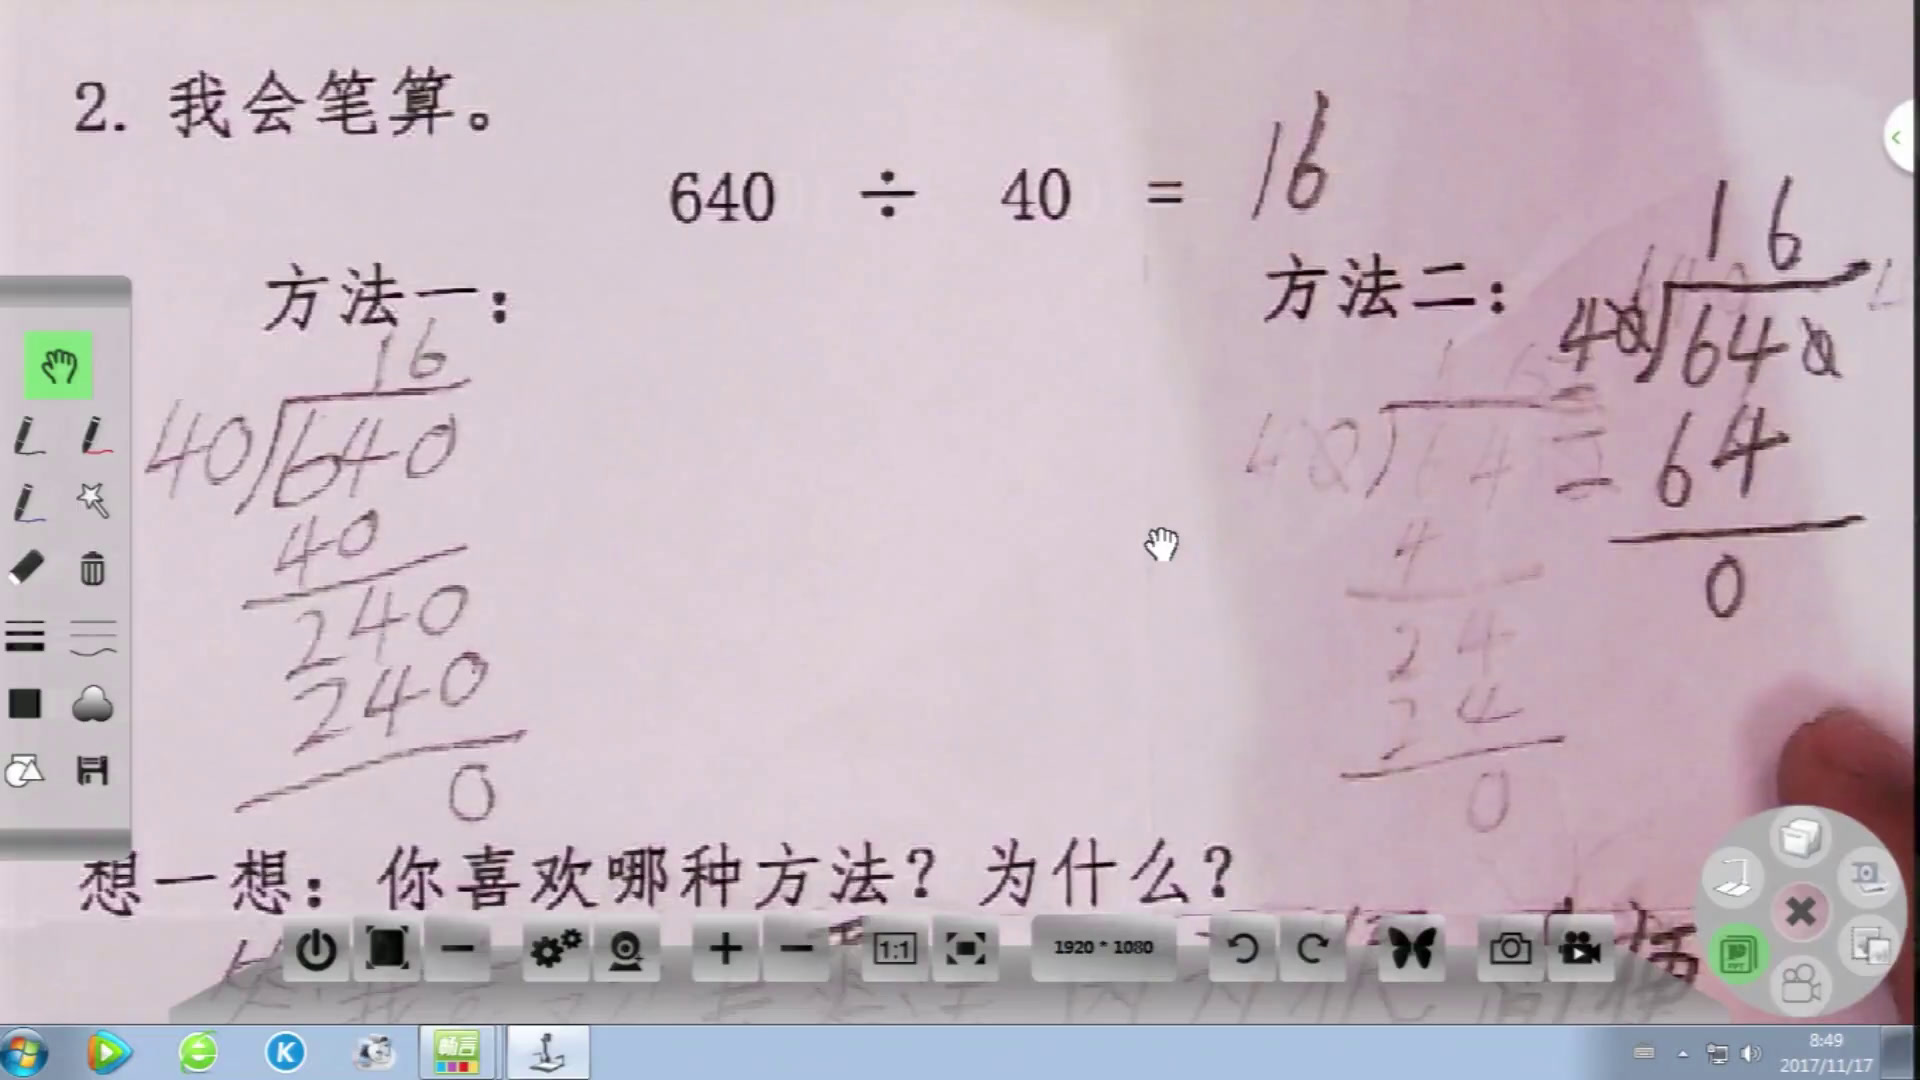 2. 我会笔算。
640 ÷ 40 = 16
方法一：
16
40 640
40
240
240
0
方法二：
16
40 640
64
0
4
24
24
0
想一想：你喜欢哪种方法？为什么？
1:1
1920 * 1080
PPT
畅言
K
8:49
2017/11/17